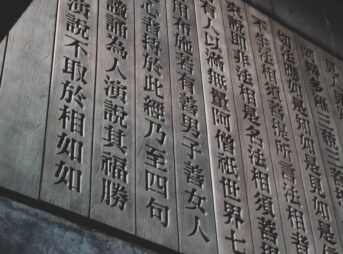 耨多羅三藐三
法應如是知如是見如是
不生法相須菩提所言法
說即非法相是名法相須菩
有人以滿無量阿僧祇世界七
用布施若有善男子善女人
心者持於此經乃至四句
讀誦為人演說其福勝
演說不取於相如如